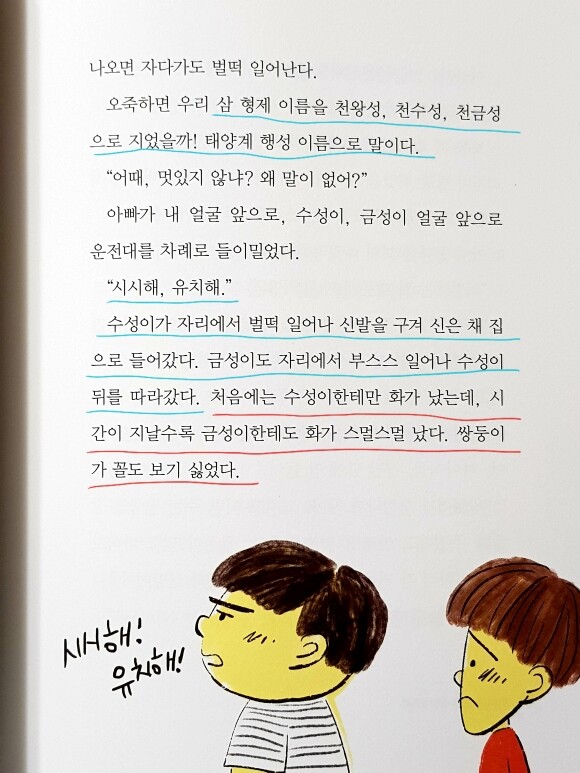 나오면 자다가도 벌떡 일어난다.
오죽하면 우리 삼 형제 이름을 천왕성, 천수성, 천금성
으로 지었을까! 태양계 행성 이름으로 말이다.
“어때, 멋있지 않냐? 왜 말이 없어?”
아빠가 내 얼굴 앞으로, 수성이, 금성이 얼굴 앞으로
운전대를 차례로 들이밀었다.
“시시해, 유치해.”
수성이가 자리에서 벌떡 일어나 신발을 구겨 신은 채 집
으로 들어갔다. 금성이도 자리에서 부스스 일어나 수성이
뒤를 따라갔다. 처음에는 수성이한테만 화가 났는데, 시
간이 지날수록 금성이한테도 화가 스멀스멀 났다. 쌍둥이
가 꼴도 보기 싫었다.
시시해!
유치해!